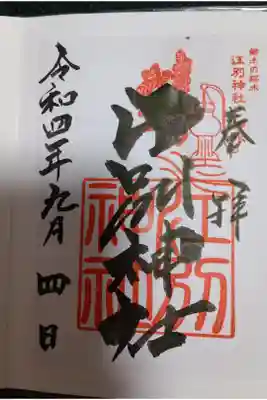 江別神社
奉拝
江別神社
江別
神社
令和四年九月四日